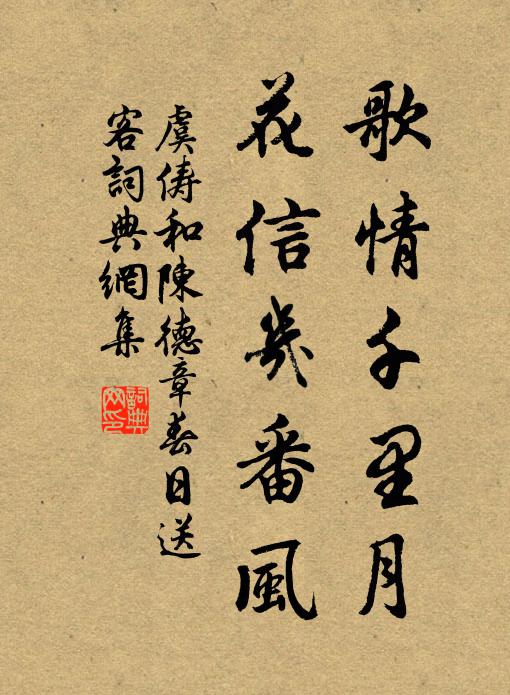 歌情千里月
花信幾番風
虞儔和陳德章春日送
客詞典網集
詞典
网印